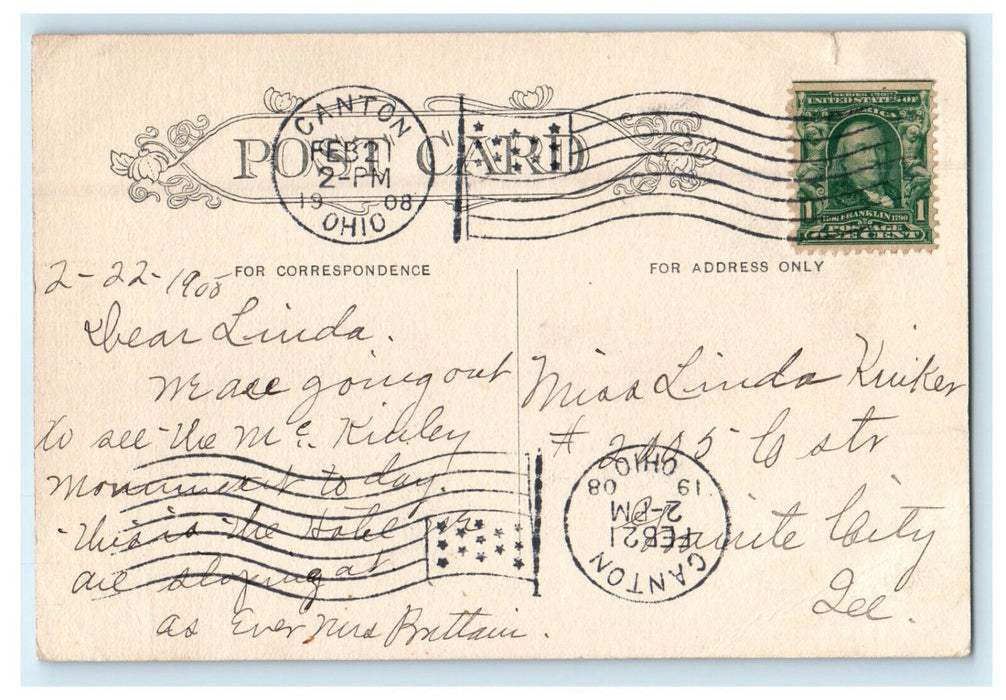 POST CARD
CANTON
FEB 21
2-PM
19 08
OHIO
SERIES 1902
UNITED STATES OF
AMERICA
1 1706 FRANKLIN 1790 1
POSTAGE
ONE CENT
FOR CORRESPONDENCE
FOR ADDRESS ONLY
2-22-1908
Dear Linda.
We are going out
to see the Mc. Kinley
Monument to day.
this is the Hotel we
are stoping at.
as Ever Mrs Brittain.
Miss Linda Kuiker
# 2105 C str
Granite City
Ill.
CANTON
FEB 21
2-PM
19 08
OHIO